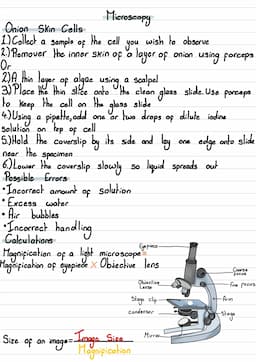 Microscopy
Onion Skin Cells
1) Collect a sample of the cell you wish to observe
2) Remover the inner skin of a layer of onion using forceps
Or
2) A thin layer of algae using a scalpel
3) Place the thin slice onto the clean glass slide. Use forceps
to keep the cell on the glass slide
4) Using a pipette, add one or two drops of dilute iodine
solution on top of cell
5) Hold the coverslip by its side and lay one edge onto slide
near the specimen
6) Lower the coverslip slowly so liquid spreads out
Possible Errors
• Incorrect amount of solution
• Excess water
• Air bubbles
• Incorrect handling
Calculations
Magnification of a light microscope=
Magnification of eyepiece x Objective lens
Eyepiece
Coarse focus
Objective Lense
Fine focus
Stage clip
Arm
Condenser
Stage
Mirror
Size of an image= Image Size
Magnification